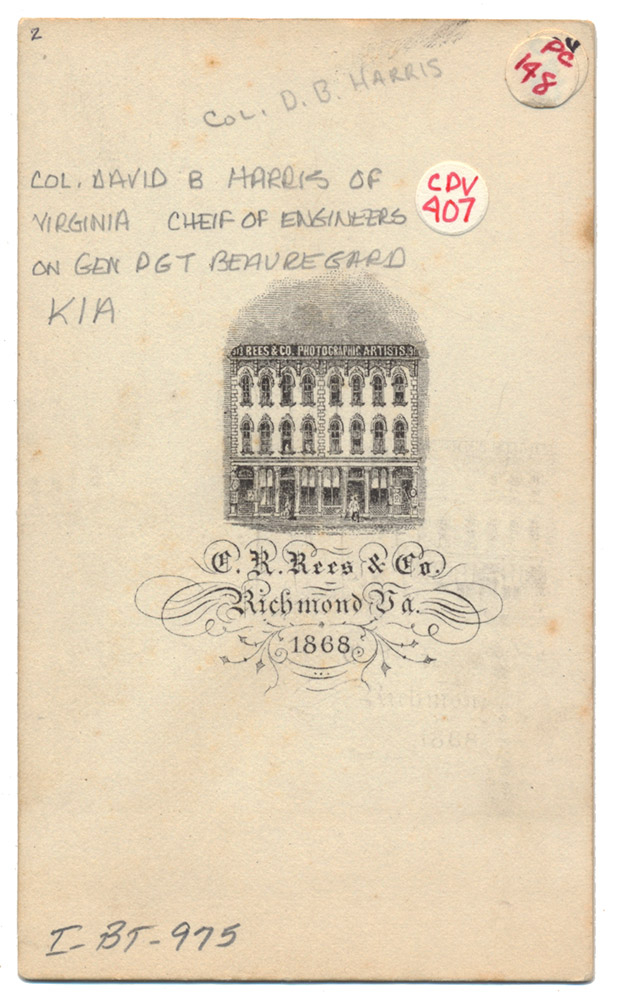 2
PC
148
COL. D. B. HARRIS
COL. DAVID B HARRIS OF
VIRGINIA CHEIF OF ENGINEERS
ON GEN PGT BEAUREGARD
KIA
CDV
407
REES & CO. PHOTOGRAPHIC ARTISTS
C. R. Rees & Co.
Richmond Va.
1868
Richmon
1868
I-BT-975